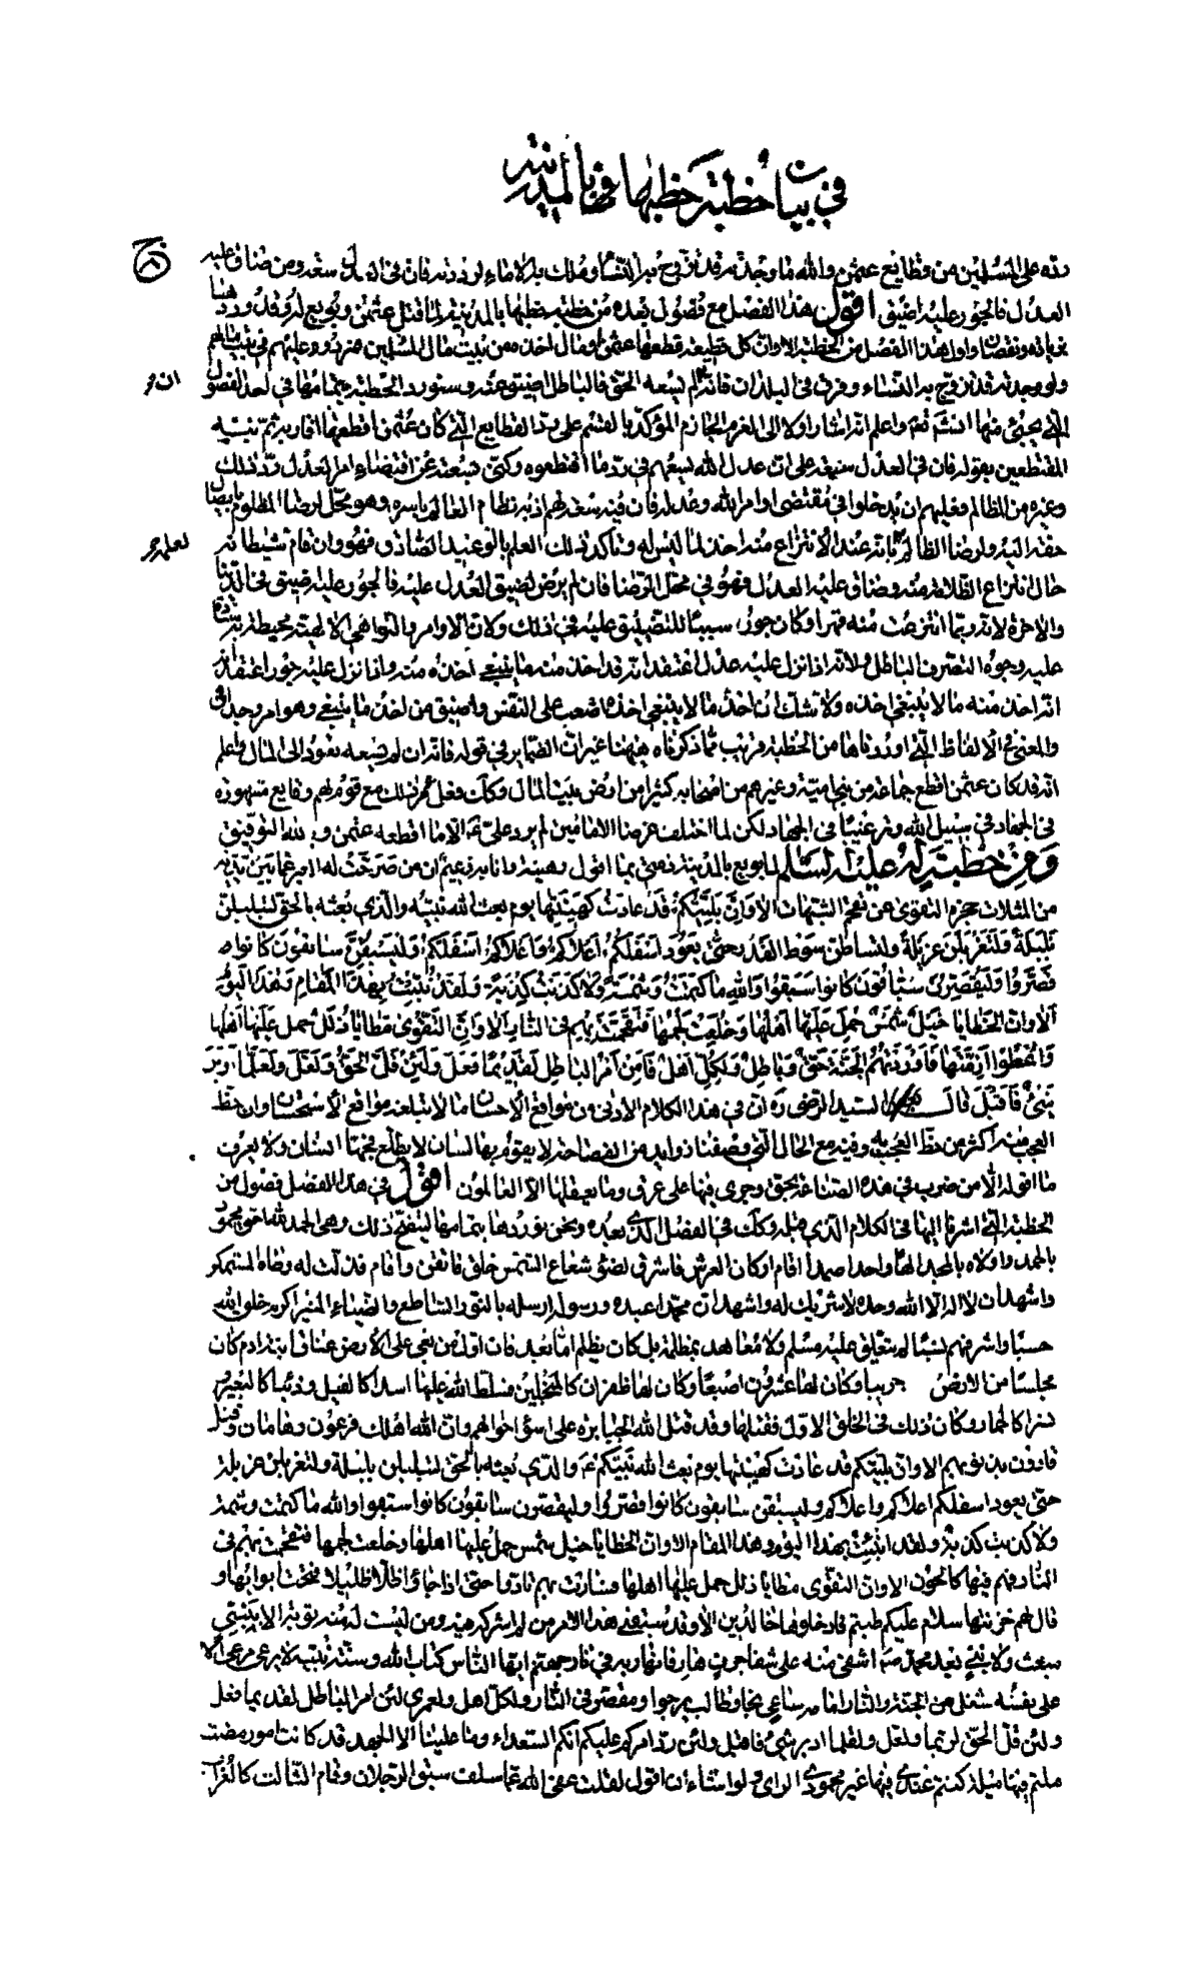 في بيان خطبة خطبها بالمدينة
رده على المسلمين من قطايع عثمن والله ما وجدته قد تزوج به النساء وملك به الاماء لرددته فان في العدل سعة ومن ضاق عليه
العدل فالجور عليه اضيق اقول هذا الفصل مع فصول بعده من خطبة خطبها بالمدينة لما قتل عثمن وبويع له وقد ورد هنا
بزيادة ونقصان واول هذا الفصل من الخطبة الا وان كل قطيعة قطعها عثمن او مال اخذه من بيت مال المسلمين فهو مردود عليهم في بيت مالهم
ولو وجدته قد تزوج به النساء وفرق في البلدان فانه ان لم يسعه الحق فالباطل اضيق عنه وسنورد الخطبة بتمامها في احد الفصول
التي يجيئ منها انشاء الله تعم واعلم انه اشار اولا الى العزم الجازم المؤكد بالقسم على رد القطايع التي كان عثمن اقطعها اقاربه ثم تنبيه
المقتطعين بقوله فان في العدل سعة على ان عدل الله يسعهم في رد ما اقتطعوه وكنى بسعته عن اقتضاء امر العدل رد ذلك
وغيره من المظالم فعليهم ان يدخلوا في مقتضى اوامر الله وعدله فان فيه سعة لهم اذ به نظام العالم باسره وهو محل لرضا المظلوم بايصال
حقه اليه ولرضا الظالم لعلمه بانه عند الانتزاع منه اخذ لما ليس له وتأكد ذلك العلم بالوعيد الصادق فهو وان قام شيطانه
حال انتزاع الظلامة منه وضاق عليه العدل فهو في محل الرضا فان لم يرض لضيق العدل عليه فالجور عليه ضيق في الدنيا
والاخرة لانه ربما انتزعت منه قهرا وكان جوره سببا للتضييق عليه في ذلك ولان الاوامر والنواهي الالهية محيطة به
عليه وجوه التصرف الباطل ولانه اذا نزل عليه عدل اعتقد انه قد اخذ منه ما ينبغي اخذه منه واذا نزل عليه جور اعتقد
انه اخذ منه ما لا ينبغي اخذه ولا شك ان اخذ ما لا ينبغي اخذه اصعب على النفس واضيق من اخذ ما ينبغي وهو امر وجداني
والمعنى في الالفاظ التي اوردناها من الخطبة قريب مما ذكرناه ههنا غير ان الضمائر في قوله فانه ان لم يسعه يعود الى المال واعلم
انه قد كان عثمن اقطع جماعة من بني امية وغيرهم من اصحابه كثيرا من ارض بيت المال وكك فعل عمر ذلك مع قوم لهم وقايع مشهورة
في الجهاد في سبيل الله وترغيبا في الجهاد لكن لما اختلف غرضا الامامين لم يرد علي ع الا ما اقطعه عثمن وبالله التوفيق
ومن خطبة له عليه السلام لما بويع بالمدينة ذمتي بما اقول رهينة وانا به زعيم ان من صرحت له العبر عما بين يديه
من المثلات حجزه التقوى عن تقحم الشبهات الا وان بليتكم قد عادت كهيئتها يوم بعث الله نبيه والذي بعثه بالحق لتبلبلن
بلبلة ولتغربلن غربلة ولتساطن سوط القدر حتى يعود اسفلكم اعلاكم واعلاكم اسفلكم وليسبقن سابقون كانوا
قصروا وليقصرن سباقون كانوا سبقوا والله ما كتمت وشمة ولا كذبت كذبة ولقد نبئت بهذا المقام وهذا اليوم
الا وان الخطايا خيل شمس حمل عليها اهلها وخلعت لجمها فتقحمت بهم في النار الا وان التقوى مطايا ذلل حمل عليها اهلها
واعطوا ازمتها فاوردتهم الجنة حق وباطل ولكل اهل فلئن امر الباطل لقديما فعل ولئن قل الحق ولعل ولعل ولقلما ادبر
شئ فاقبل قال السيد الرضى ره ان في هذا الكلام الادنى من مواقع الاحسان ما لا تبلغه مواقع الاستحسان وان حظ
العجب منه اكثر من حظ العجب به وفيه مع الحال التي وصفنا زوايد من الفصاحة لا يقوم بها لسان لا يطلع فجها انسان ولا يعرف
ما اقوله الا من ضرب في هذه الصناعة بحق وجرى فيها على عرق وما يعقلها الا العالمون اقول في هذا الفصل فصول من
الخطبة التي اشرنا اليها في الكلام الذي قبله وكك في الفصل الذي بعده ونحن نوردها بتمامها ليتضح ذلك وهي الحمد لله احق محمود
بالحمد واولاه بالمجد الها واحدا صمدا اقام اركان العرش فاشرق لضوئه شعاع الشمس خلق فاتقن واقام فذلت له وطاة المستمكن
واشهد ان لا اله الا الله وحده لا شريك له واشهد ان محمدا عبده ورسوله ارسله بالنور الساطع والضياء المنير اكرم خلق الله
حسبا واشرفهم نسبا لم يتعلق عليه مسلم ولا معاهد بمظلمة بل كان يظلم اما بعد فان اول من بغى على الارض عناق ابنة ادم كان
مجلسها من الارض جريبا وكان لها عشرون اصبعا وكان لها ظفران كالمنجلين فسلط الله عليها اسدا كالفيل وذئبا كالبعير
ونسرا كالحمار وكان ذلك في الخلق الاول فقتلها وقد قتل الله الجبابرة على اسوء احوالهم وان الله اهلك فرعون وهامان وقتل
قارون بذنوبهم الا وان بليتكم قد عادت كهيئتها يوم بعث الله نبيكم ص والذي بعثه بالحق لتبلبلن بلبلة ولتغربلن غربلة
حتى يعود اسفلكم اعلاكم واعلاكم وليسبقن سابقون كانوا قصروا وليقصرن سابقون كانوا سبقوا والله ما كتمت وشمة
ولا كذبت كذبة ولقد انبئت بهذا اليوم وهذا المقام الا وان الخطايا خيل شمس حمل عليها اهلها وخلعت لجمها فتقحمت بهم في
النار فهم فيها كالحون الا وان التقوى مطايا ذلل حمل عليها اهلها فسارت بهم تاودا حتى اذا جاؤا ظلا ظليلا فتحت ابوابها و
قال لهم خزنتها سلام عليكم طبتم فادخلوها خالدين الا وقد سبقني هذا الامر من لم اشركه فيه ومن ليست له منه توبة الا بنبي
مبعث ولا نبي بعد محمد ص اشفى منه على شفا جرف هار فانهار به في نار جهنم ايها الناس كتاب الله وسنة نبيه لا يرعى مرع الا
على نفسه شغل من الجنة والنار امامه ساع نجا وطالب يرجو ومقصر في النار ولكل اهل ولعمري لئن امر الباطل لقديما فعل
ولئن قل الحق لربما ولعل ولقلما ادبر شئ فاقبل ولئن رد امركم عليكم انكم السعداء وما علينا الا الجهد قد كانت امور مضت
ملتم فيها ميلة كنتم عندي فيها غير محمودي الراي ولو اشاء ان اقول لقلت عفى الله عما سلف سبق الرجلان وقام الثالث كالغراب